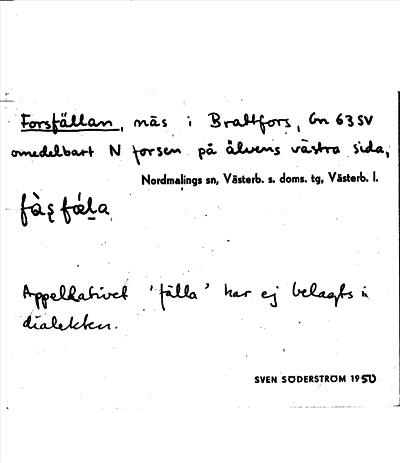 Forsfällan, näs i Brattfors, Gn 63 SV
omedelbart N forsen på älvens västra sida,
Nordmalings sn, Västerb. s. doms. tg, Västerb. l.
Appellativet 'fälla' har ej belagts i
dialekten.
SVEN SÖDERSTRÖM 1950